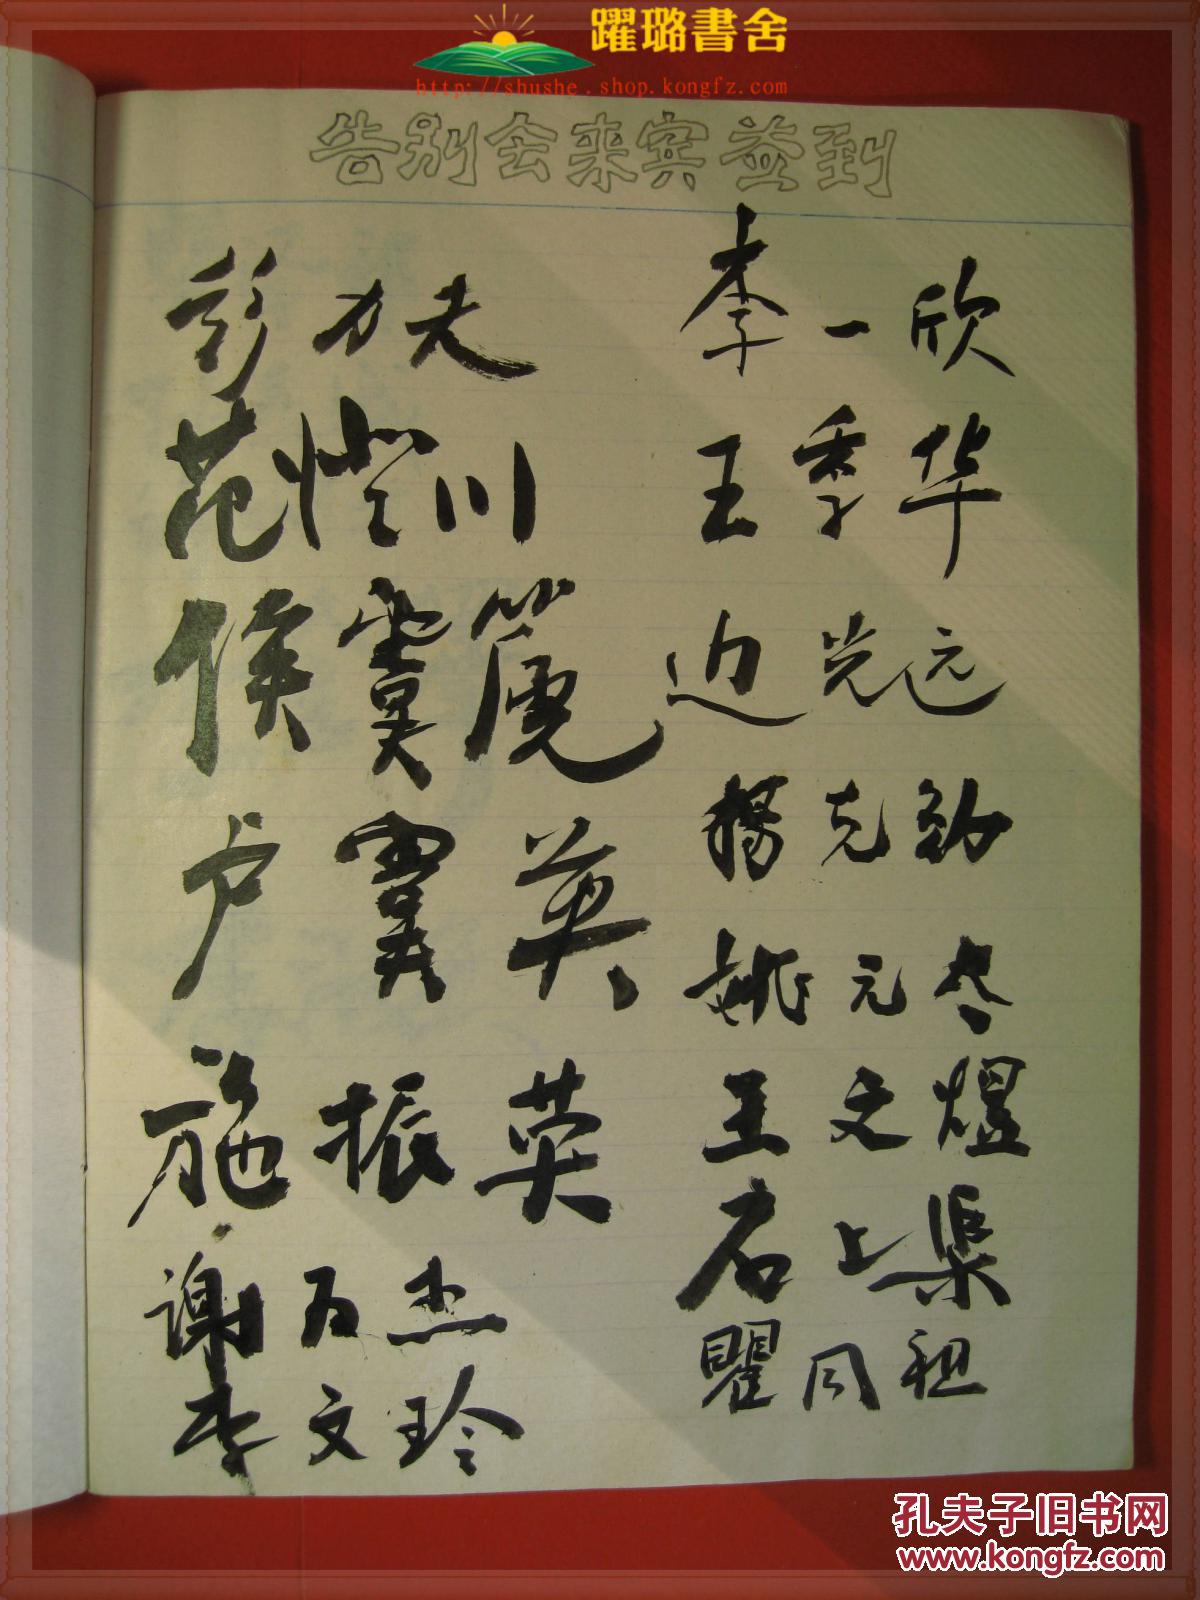 躍璐書舍
http://shushe.shop.kongfz.com
告别会来宾签到
彭力夫
范慥川
侯
卢 英
施振荣
谢万杰
李文玲
李一欣
王季华
边光远
杨克勤
姚元尽
王文煜
石上渠
瞿同祖
孔夫子旧书网
www.kongfz.com